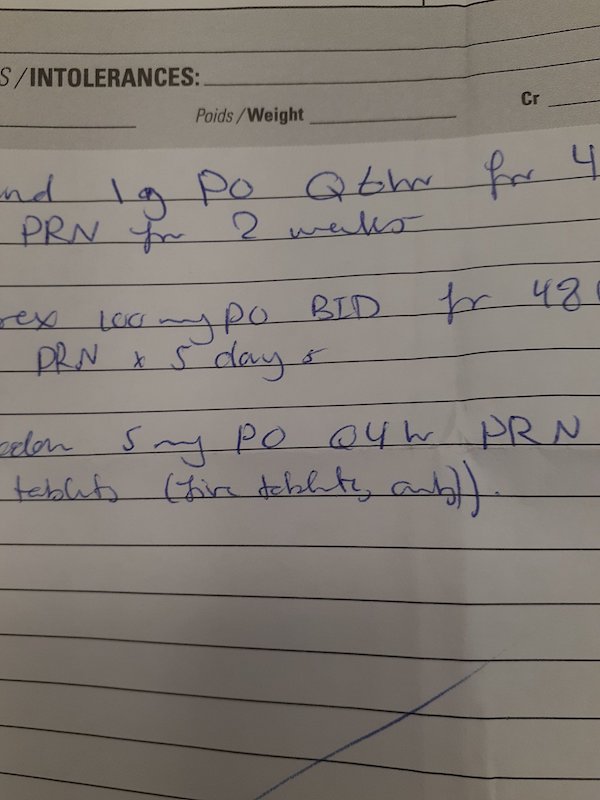 S/INTOLERANCES:
Poids/Weight
Cr
nd 1g PO Q6hr for 4
PRN for 2 weeks
rex 100 mg PO BID for 48
PRN x 5 days
edon 5 mg PO Q4hr PRN
tablets (five tablets only)).